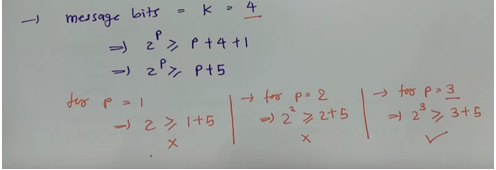 → message bits = K = 4
⇒ 2^p ≥ p+4+1
⇒ 2^p ≥ p+5
for p = 1
⇒ 2 ≥ 1+5
x
→ for p = 2
⇒ 2^2 ≥ 2+5
x
→ for p = 3
⇒ 2^3 ≥ 3+5
✓